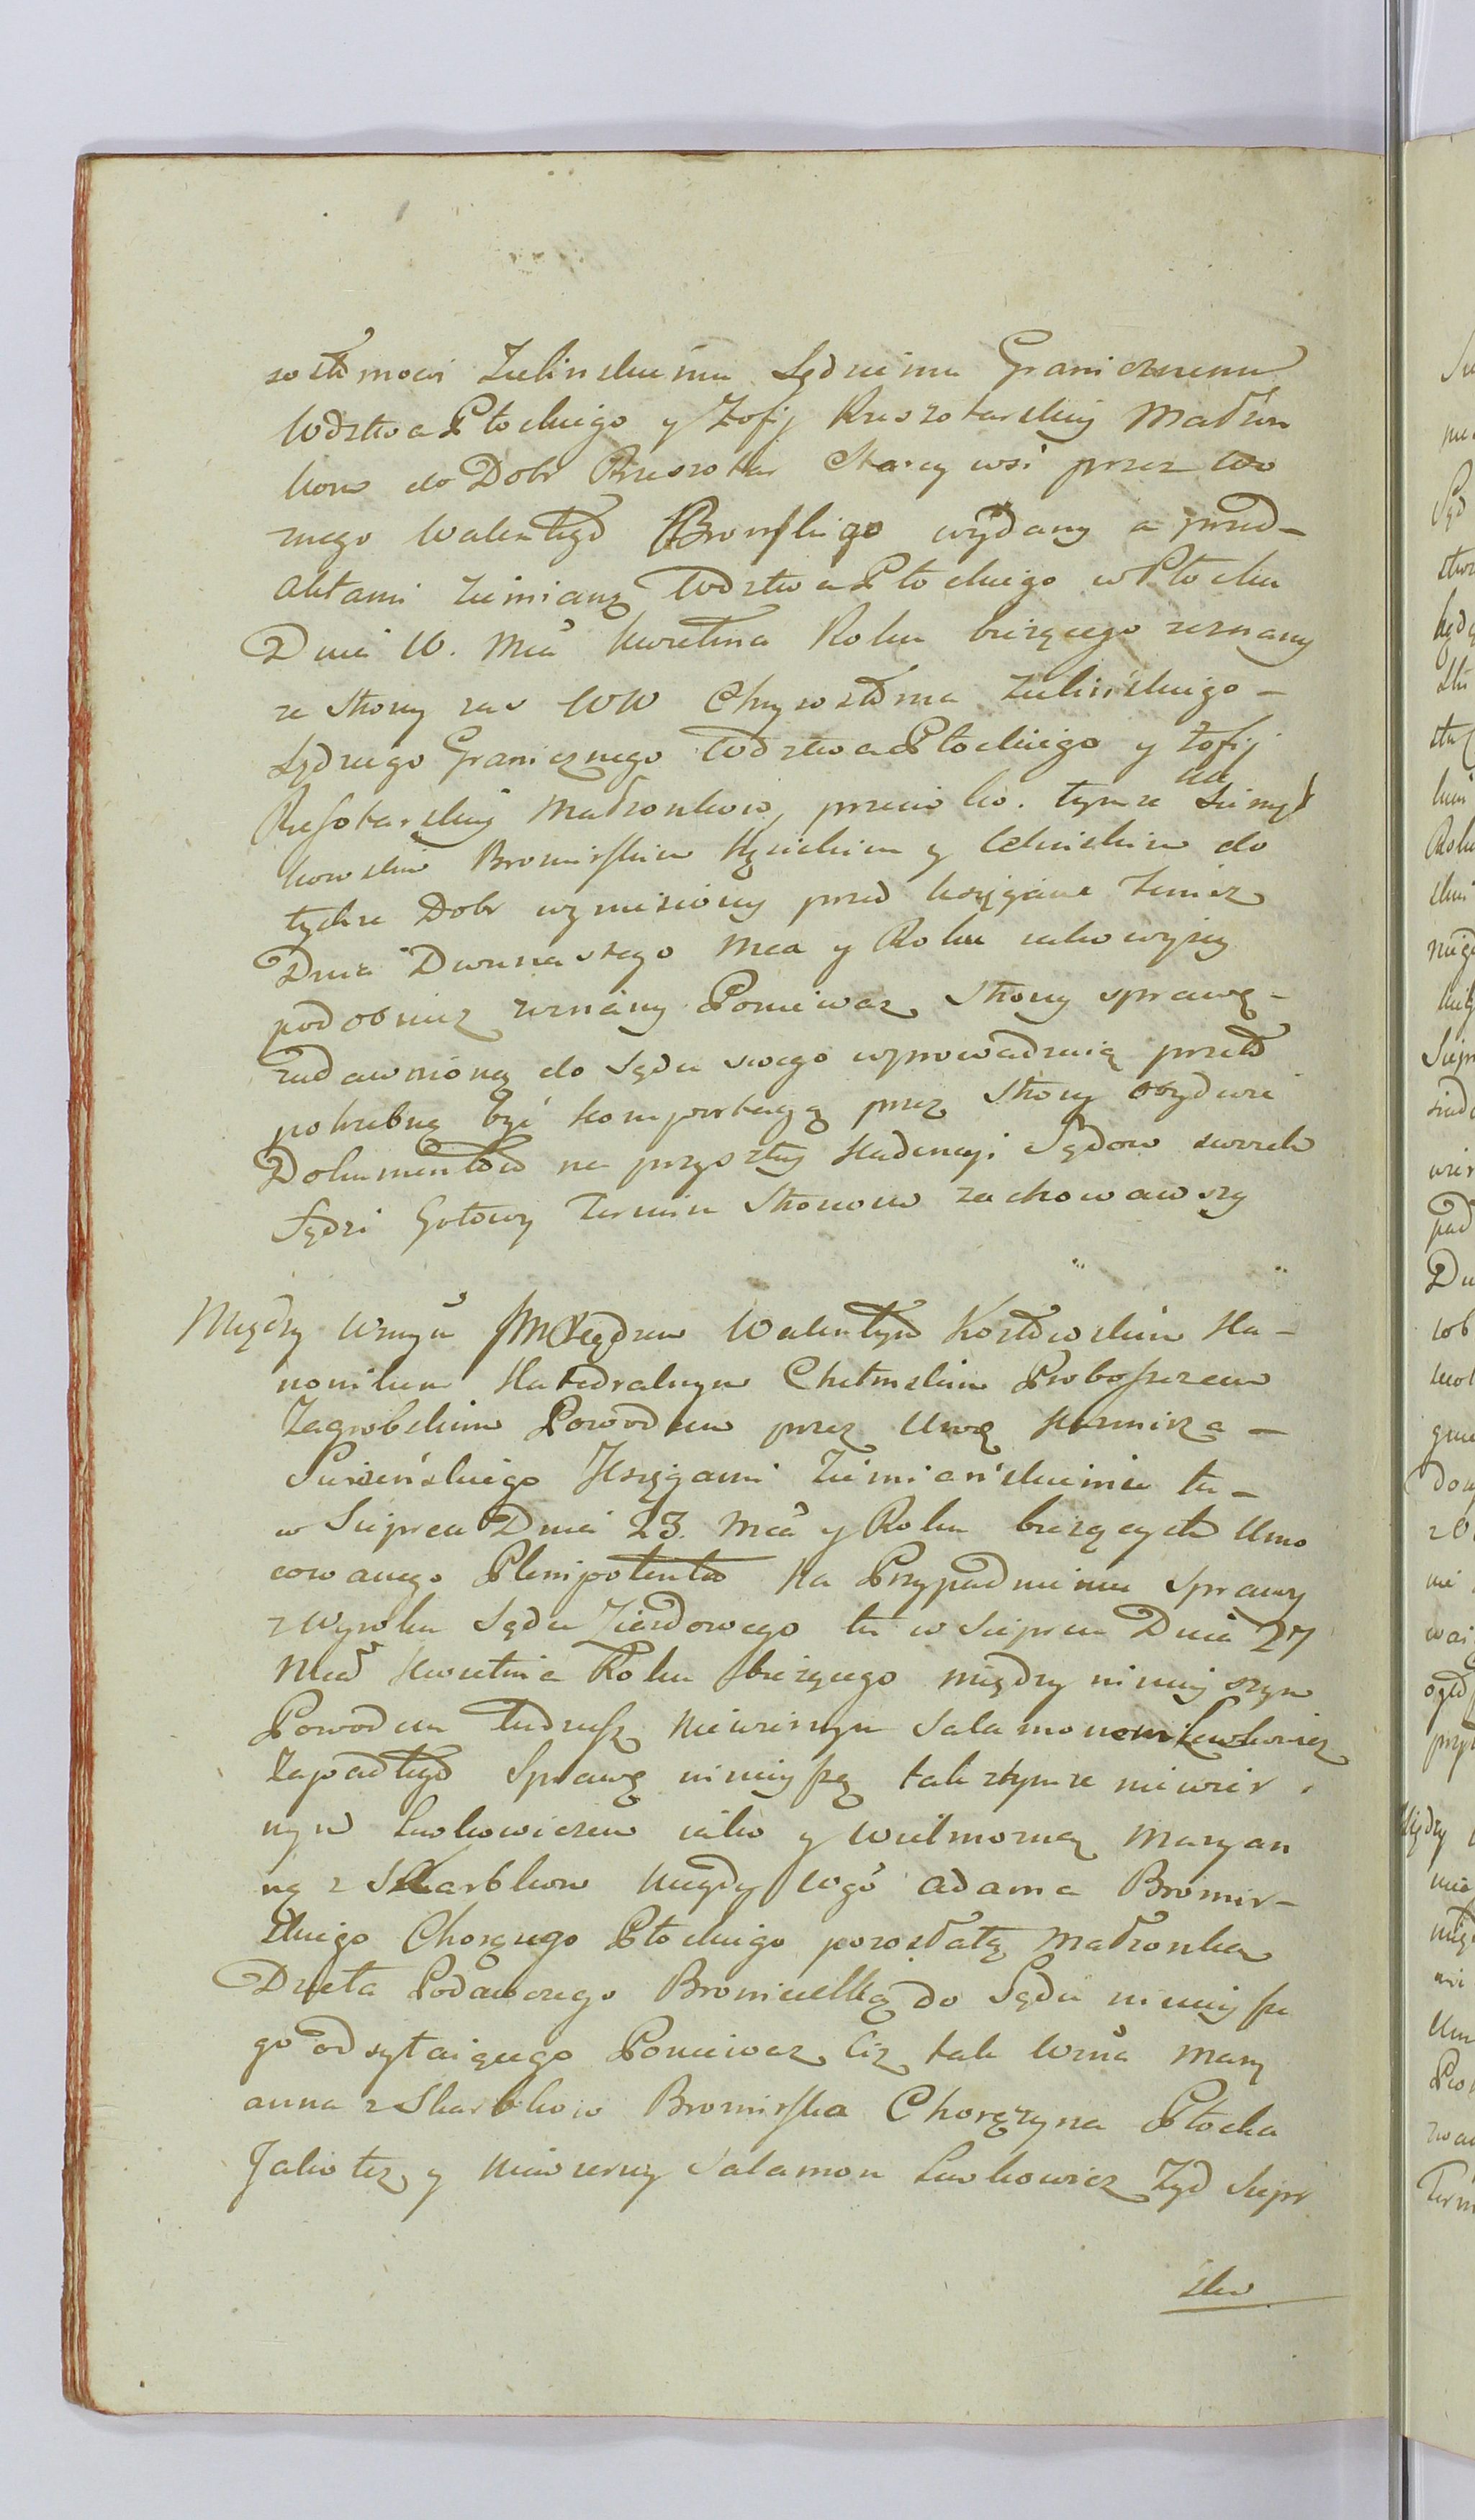 zostomowi Zielinskiemu Sędziemu Granicznemu
Wdztwa Płockiego y Zofij Rzeszotarskiej Małżon
kom do Dobr Rzeszotar Starey wsi przez Wo
znego Walentego Bromskiego wydany a przed-
Aktami Ziemian Wdztwa Płockiego w Płocku
Dnia 10. Mca Kwietnia Roku bieżącego zeznany
ze Strony zas WW Chryzostoma Zielińskiego -
Sędziego Granicznego Wdztwa Płockiego y Zofij
Rzeszotarskiej Małżonkow, przeciwko. tymże
Bromirskim y do
tychże Dobr wyniesiony przed księgami Ziemi
Dnia Dwunastego Mca y Roku iako wyżey
podobnież zeznany Ponieważ Strony sprawę -
zadawnioną do Sądu swego wprowadzaią przeto
potrzebną być komportacyą przez Strony obydwie
Dokumentow na przyszłey Kadencyi Sądow swoich
Sądzi Gotowy Termin Stronom zachowawszy
Między Wnym JMXiędzem Walentym Kozłowskim Ka-
nonikiem Katedralnym Chełmskim Proboszczem
Zagrobskim Powodem przez Urog Kazmirza -
Księgami Ziemiańskiemi tu -
w Sieprcu Dnia 23. Mca y Roku bieżących Umo
cowanego Plenipotenta Na Przypadnieniu Sprawy
z Wyroku Sądu Ziazdowego tu w Sieprcu Dnia 27
Mca Kwietnia Roku bieżącego między ninieyszym
Powodem tudzież Niewiernym Salamonem Lewkowicz
Zapadłego Sprawę ninieyszą tak ztymże niewier
nym Lewkowiczem iako y Wielmożną Maryan
ną z Skarbkow niegdy Wgo Adama Bromir-
skiego Chorążego Płockiego pozostałą Małżonką
do Sądu ninieysze
go odsyłaiącego Ponieważ Ciż tak Wzna Mary
anna z Skarbkow Bromirska Chorążyna Płocka
Jako też y Niewierny Salamon Lewkowicz Żyd Siepr
ski